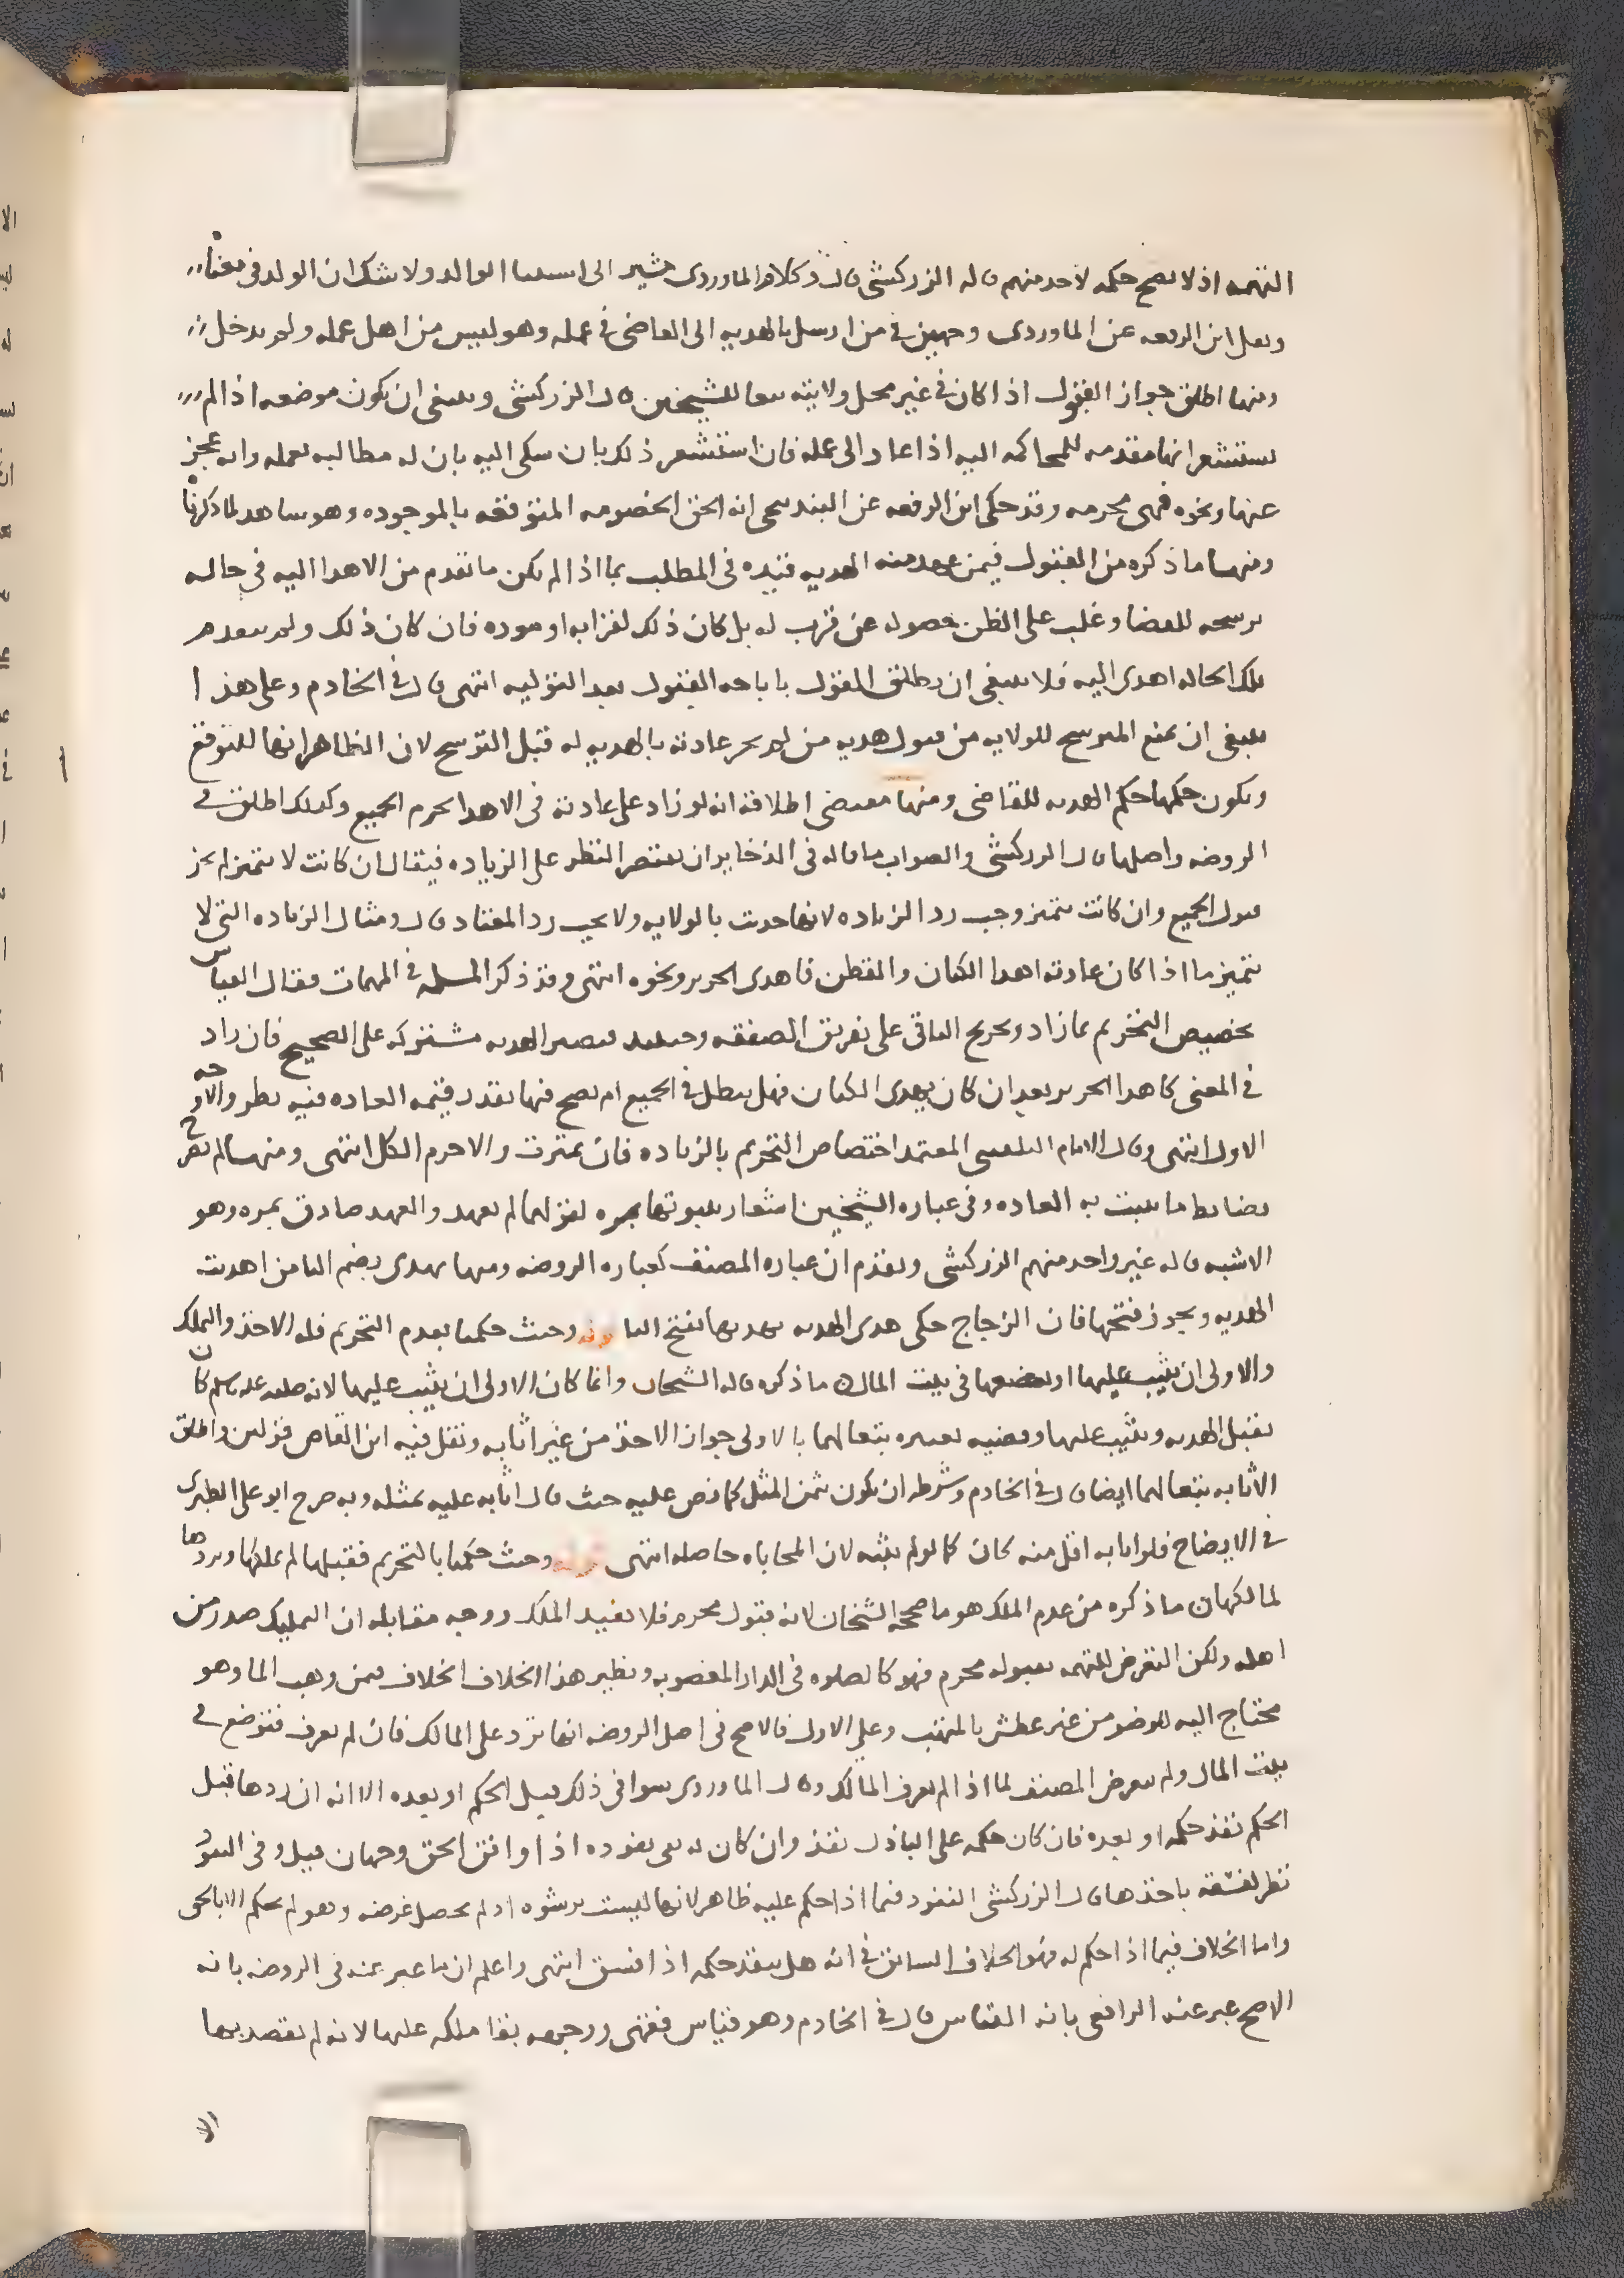 التهمه اذ لا يصح حكمه لاحد منهم قاله الزركشي قال وكلام الماوردي مشير الى استثنا الوالد ولا شك ان الولد في معناه
ونقل ابن الرفعه عن الماوردي وجهين في من ارسل بالهديه الى القاضي في عمله وهو ليس من اهل عمله ولم يدخل
ومنها اطلق جواز القبول اذا كان في غير محل ولايته تبعا للشيخين قال الزركشي وينبغي ان يكون موضعه اذا لم
يستشعر انها مقدمه للمحاكمه اليه اذا عاد الى عمله فان استشعر ذلك بان شكى اليه بان له مطالبه بعمله وانه عجز
عنها ونحوه فهي محرمه وقد حكى ابن الرفعه عن البندنيجي انه الحق الخصومه المتوقعه بالموجوده وهو شاهد لما ذكرنا
ومنها ما ذكره من القبول فيمن عهد منه الهديه قيده في المطلب بما اذا لم يكن ما تقدم من الاهدا اليه في حاله
ترشحه للقضا وغلب على الظن حصوله عن قرب له بل كان ذلك لقرابه او موده فان كان ذلك ولم يتقدم
تلك الحاله اهدى اليه فلا ينبغي ان يطلق القول باباحه القبول بعد التوليه انتهى قال في الخادم وعلى هذا
ينبغي ان يمنع المترشح للولايه من قبول هديه من لم تجر عادته بالهديه له قبل الترشح لان الظاهر انها للتوقع
ويكون حكمها حكم الهديه للقاضي ومنها مقتضى اطلاقه انه لو زاد على عادته في الاهدا يحرم الجميع وكذلك اطلق في
الروضه واصلها قال الزركشي والصواب ما قاله في الذخاير ان يقتصر النظر على الزياده فيقال ان كانت لا تتميز لم يجز
قبول الجميع وان كانت تتميز وجب رد الزياده لانها حدثت بالولايه ولا يجب رد المعتاد قال ومثال الزياده التي لا
تتميز ما اذا كان عادته اهدا الكتان والقطن فاهدى الحرير ونحوه انتهى وقد ذكر المسله في المهمات فقال القياس
تخصيص التحريم بما زاد وتخريج الباقي على تفريق الصفقه وحينئذ فتصير الهديه مشتركه على الصحيح فان زاد
في المعنى كاهدا الحرير بعد ان كان يهدي الكتان فهل يبطل في الجميع ام يصح فيها بقدر قيمه العاده فيه نظر والاوجه
الاول انتهى وقال الامام البلقيني المعتمد اختصاص التحريم بالزياده فان تميزت والا حرم الكل انتهى ومنها لم يصرح
بضابط ما يثبت به العاده وفي عباره الشيخين اشعار بثبوتها بمره لقولهما لم تعهد والعهد صادق بمره وهو
الاشبه قاله غير واحد منهم الزركشي وتقدم ان عباره المصنف كعباره الروضه ومنها يهدى بضم اليا من اهديت
الهديه ويجوز فتحها فان الزجاج حكى هدى الهديه يهديها بفتح اليا قوله وحيث حكمنا بعدم التحريم فله الاخذ والتملك
والاولى ان يثيب عليها او يضعها في بيت المال ن ما ذكره قاله الشيخان وانما كان الاولى ان يثيب عليها لانه صلى الله عليه وسلم كان
يقبل الهديه ويثيب عليها وقضيه تعبيره تبعا لهما بالاولى جواز الاخذ من غير اثابه ونقل فيه ابن القاص قولين واطلق
الاثابه تبعا لهما ايضا قال في الخادم وشرطه ان يكون ثمن المثل كما نص عليه حيث قال اثابه عليه بمثله وبه صرح ابو علي الطبري
في الايضاح فلو اثابه اقل منه كان كما لو لم يثبه لان المحاباه حاصله انتهى قوله وحيث حكمنا بالتحريم فقبلها لم يملكها ويردها
لمالكها ن ما ذكره من عدم الملك هو ما صححه الشيخان لانه قبول محرم فلا يفيد الملك ووجه مقابله ان التمليك صدر من
اهله ولكن التعرض للتهمه بقبوله محرم فهو كالصلوه في الدار المغصوبه ونظير هذا الخلاف الخلاف فيمن وهب الما وهو
محتاج اليه للوضو من غير عطش بالمتهب وعلى الاول فالاصح في اصل الروضه انها ترد على المالك فان لم يعرف فتوضع في
بيت المال ولم يتعرض المصنف لما اذا لم يعرف المالك وقال الماوردي سوا في ذلك قبل الحكم او بعده الا انه ان ردها قبل
الحكم نفذ حكمه او بعده فان كان حكمه على الباذل نفذ وان كان له ففي نفوذه اذا وافق الحق وجهان قيل وفي النفوذ
نظر لفسقه باخذها قال الزركشي النفوذ فيما اذا حكم عليه ظاهر لانها ليست برشوه اذ لم يحصل غرضه وهو لم يحكم الا بالحق
واما الخلاف فيما اذا حكم له فهو الخلاف السابق في انه هل ينفذ حكمه اذا فسق انتهى واعلم ان ما عبر عنه في الروضه بانه
الاصح عبر عنه الرافعي بانه القياس قال في الخادم وهو قياس فقهي ووجهه بقا ملكه عليها لانه لم يقصد بها
الا